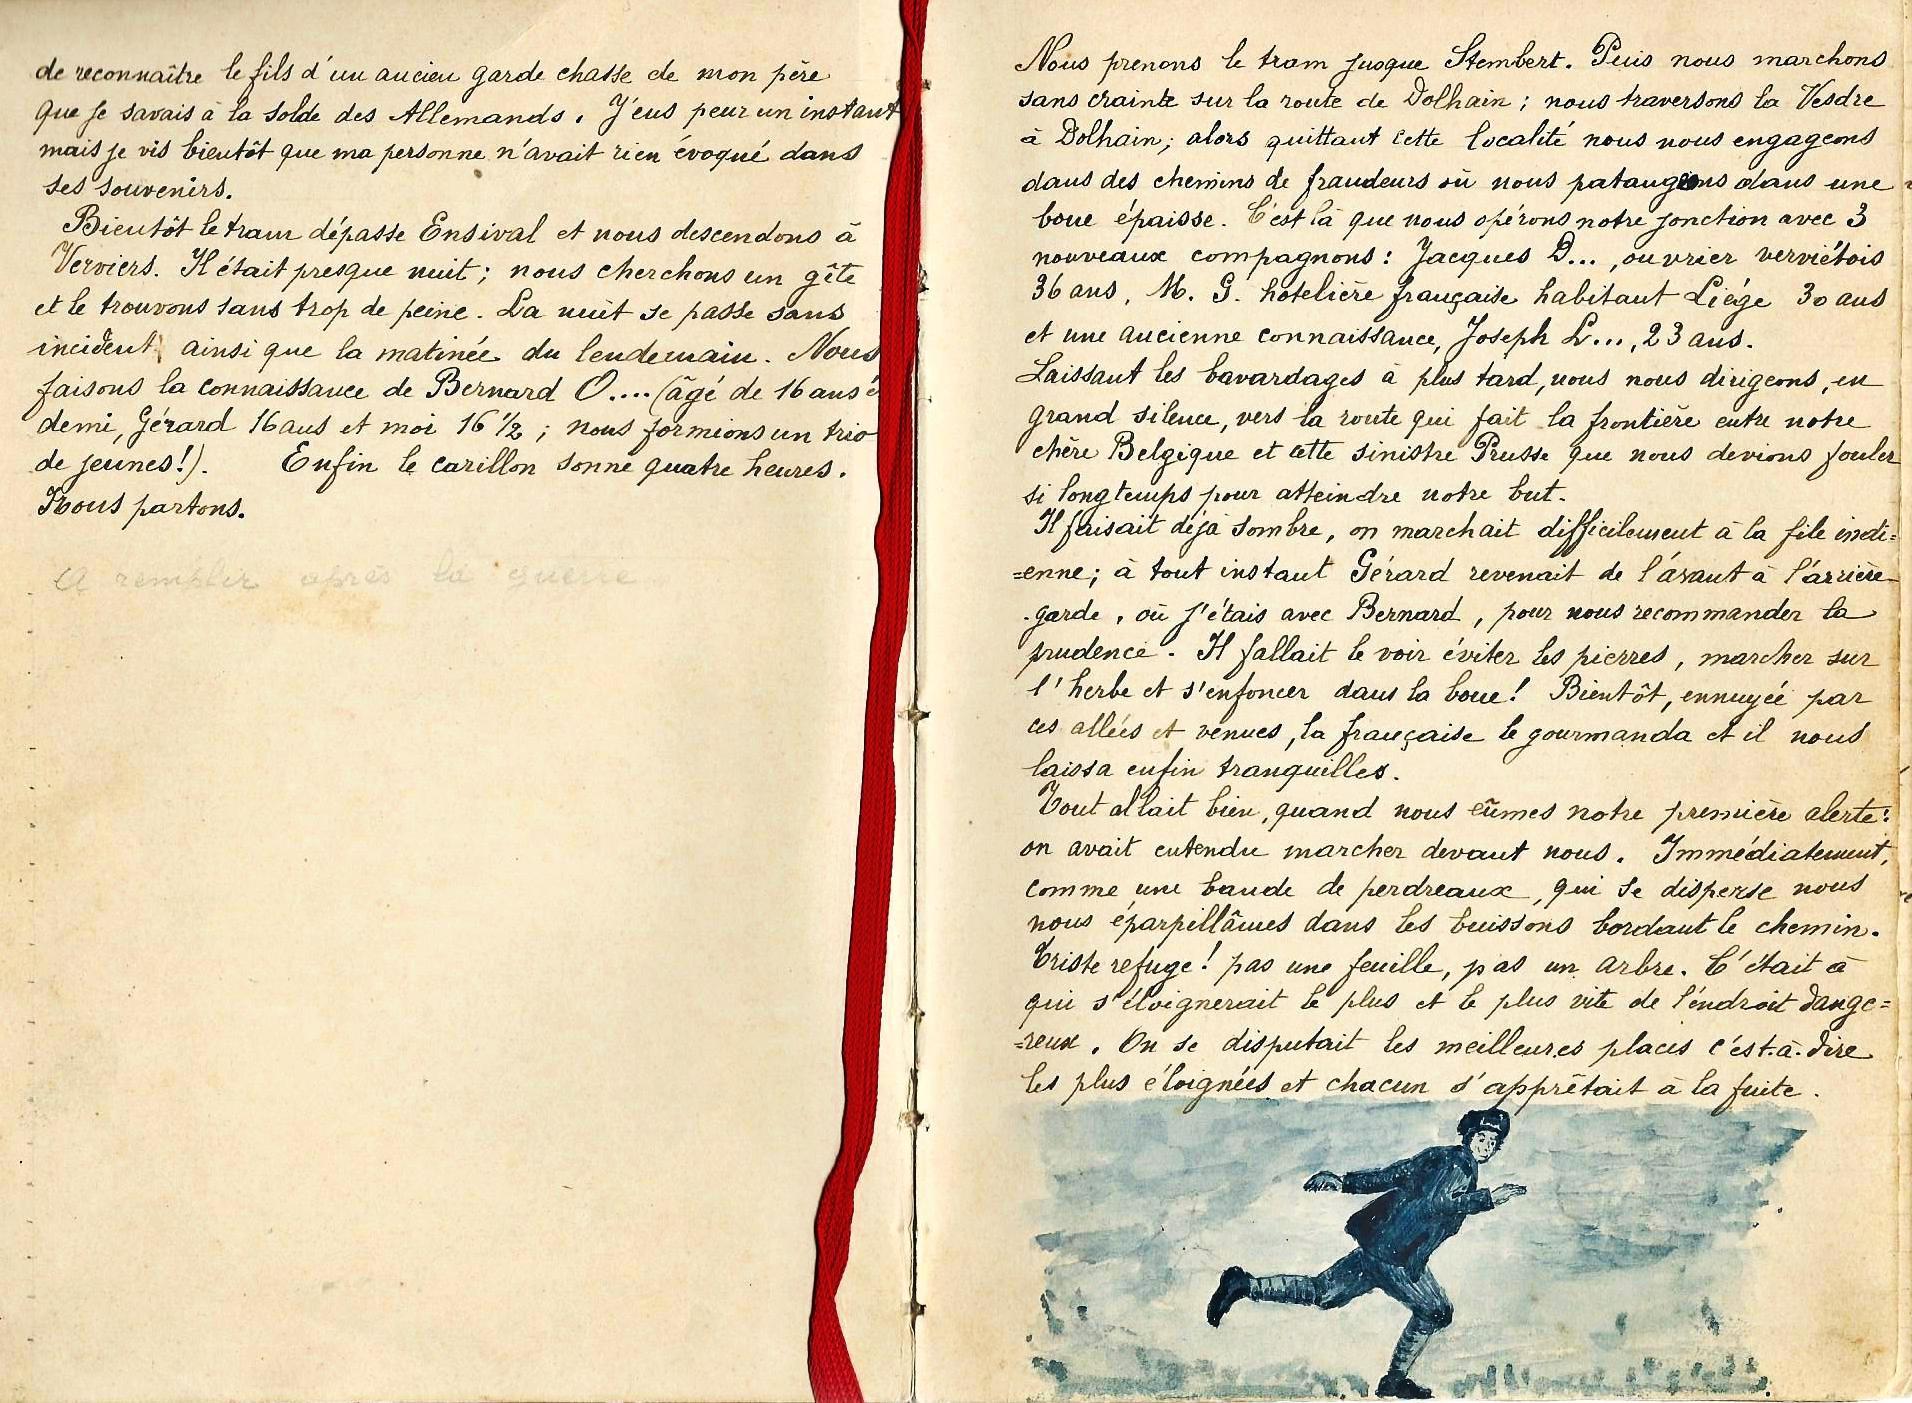 de reconnaître le fils d'un ancien garde chasse de mon père
que je savais à la solde des Allemands. J'eus peur un instant
mais je vis bientôt que ma personne n'avait rien évoqué dans
ses souvenirs.
Bientôt le tram dépasse Ensival et nous descendons à
Verviers. Il était presque nuit ; nous cherchons un gîte
et le trouvons sans trop de peine. La nuit se passe sans
incident, ainsi que la matinée du lendemain. Nous
faisons la connaissance de Bernard O.... (âgé de 16 ans e
demi, Gérard 16 ans et moi 16 1/2 ; nous formions un trio
de jeunes!). Enfin le carillon sonne quatre heures.
Nous partons.
A remplir après la guerre
Nous prenons le tram jusque Stembert. Puis nous marchons
sans crainte sur la route de Dolhain ; nous traversons la Vesdre
à Dolhain ; alors quittant cette localité nous nous engageons
dans des chemins de fraudeurs où nous pataugeons dans une
boue épaisse. C'est là que nous opérons notre jonction avec 3
nouveaux compagnons : Jacques D... , ouvrier verviétois
36 ans, M. G. hotelière française habitant Liége 30 ans
et une ancienne connaissance, Joseph L..., 23 ans.
Laissant les bavardages à plus tard, nous nous dirigeons, en
grand silence, vers la route qui fait la frontière entre notre
chère Belgique et cette sinistre Prusse que nous devions fouler
si longtemps pour atteindre notre but.
Il faisait déjà sombre, on marchait difficilement à la file indi=
=enne ; à tout instant Gérard revenait de l'avant à l'arrière-
-garde, où j'étais avec Bernard, pour nous recommander la
prudence. Il fallait le voir éviter les pierres, marcher sur
l'herbe et s'enfoncer dans la boue! Bientôt, ennuyée par
ces allées et venues, la française le gourmanda et il nous
laissa enfin tranquilles.
Tout allait bien, quand nous eûmes notre première alerte :
on avait entendu marcher devant nous. Immédiatement,
comme une bande de perdreaux, qui se disperse nous
nous éparpillâmes dans les buissons bordant le chemin.
Triste refuge! pas une feuille, pas un arbre. C'était à
qui s'éloignerait le plus et le plus vite de l'endroit dange=
=reux. On se disputait les meilleures places c'est-à-dire
les plus éloignées et chacun s'apprêtait à la fuite.